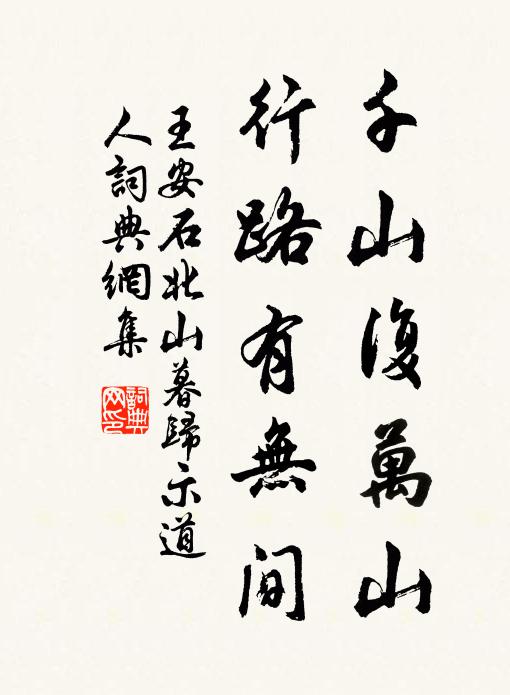 千山復萬山
行路有無间
王安石北山暮歸示道
人詞典網集
詞典
网印